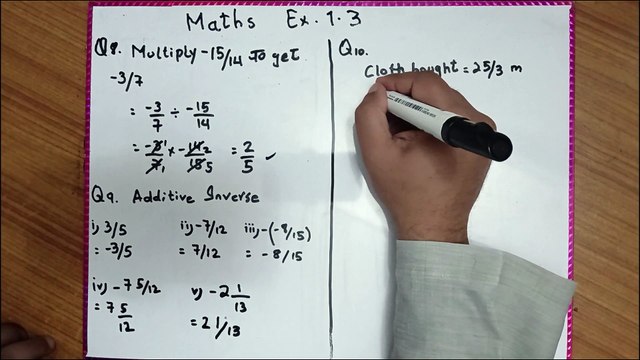 Maths Ex. 1.3
Q8. Multiply -15/14 to get
-3/7
= -3/7 ÷ -15/14
= -3 1/7 1 × -14 2/15 5 = 2/5 ✓
Q9. Additive Inverse
i) 3/5 ii) -7/12 iii) -(-8/15)
= -3/5 = 7/12 = -8/15
iv) -7 5/12 v) -2 1/13
= 7 5/12 = 2 1/13
Q10.
Cloth bought = 25/3 m